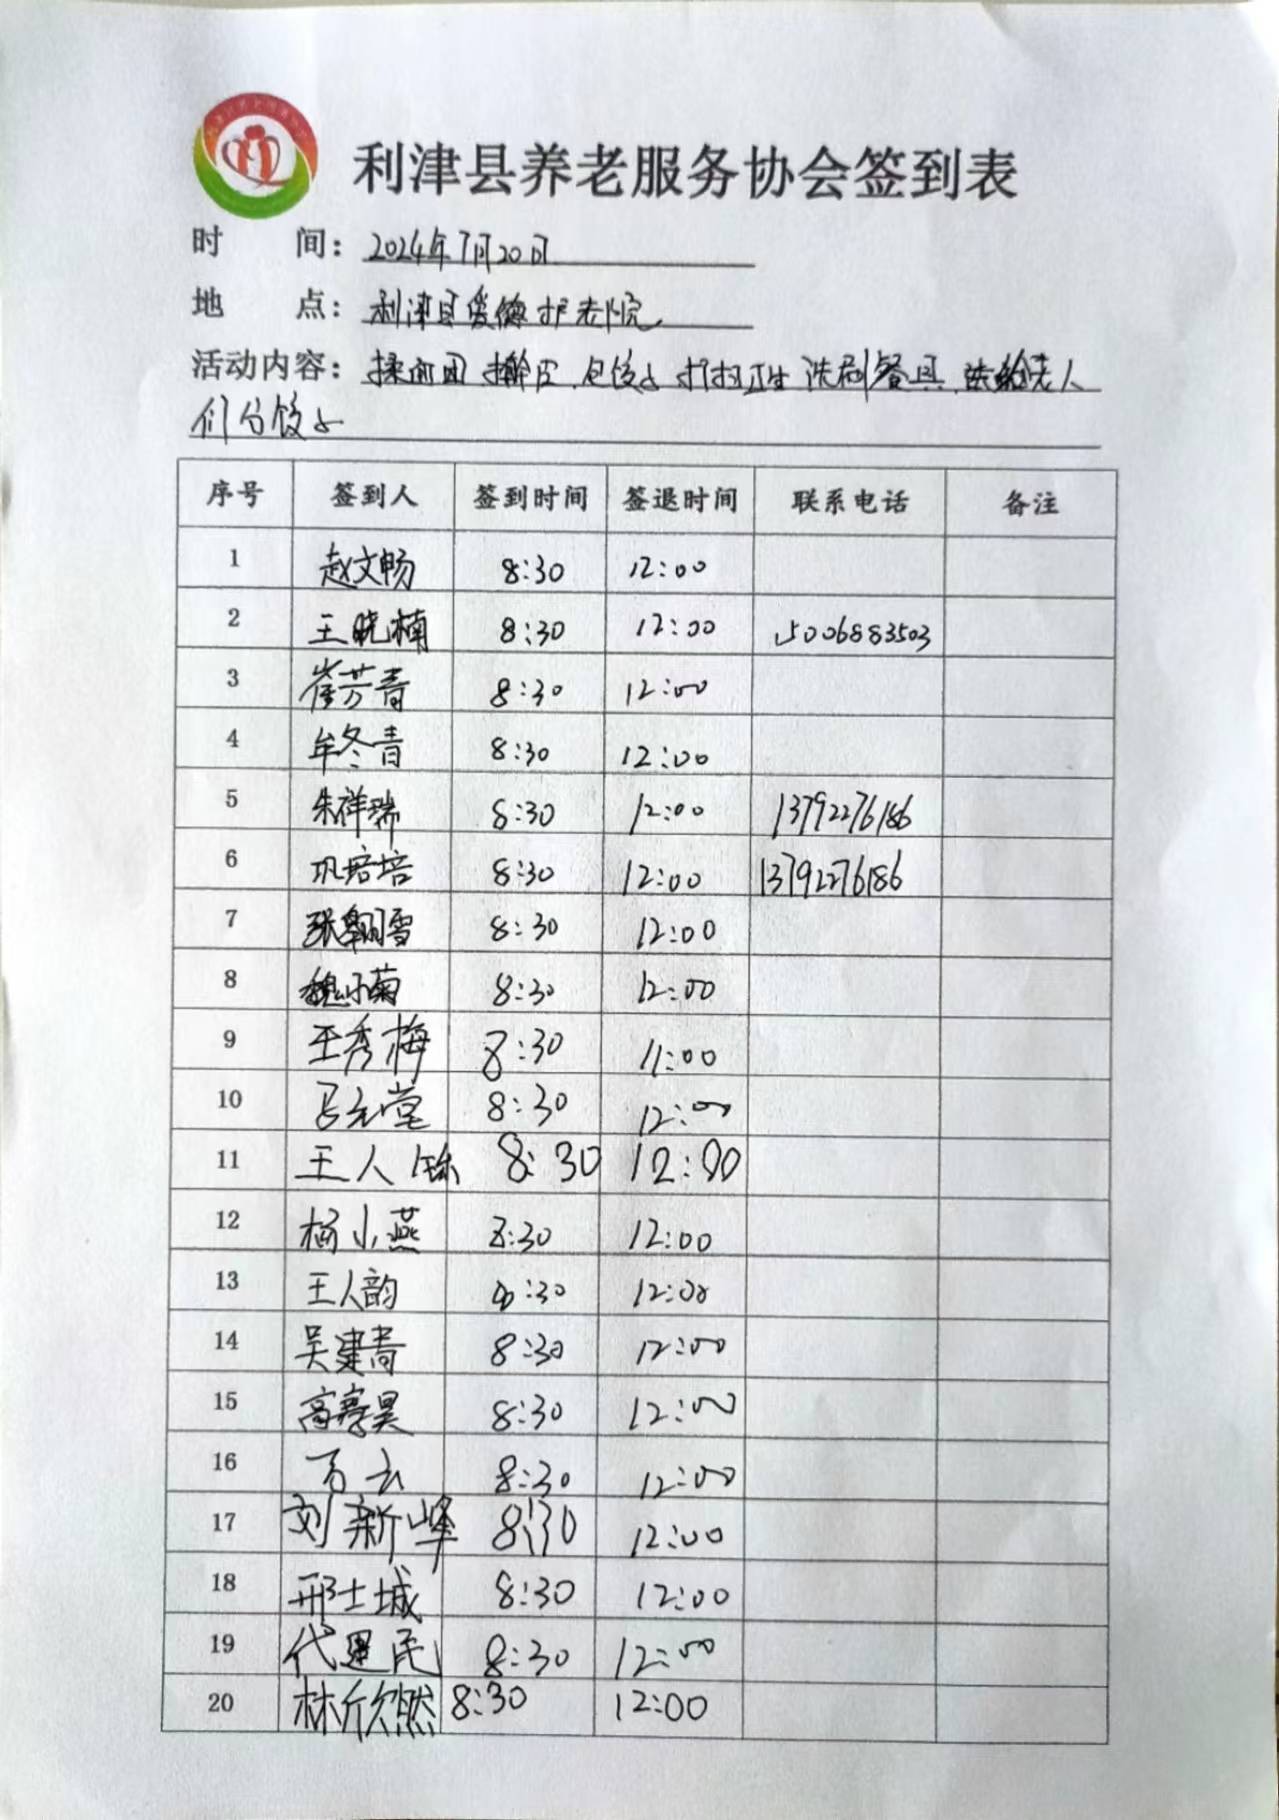 利津县养老服务协会签到表
时 间：2024年7月20日
地 点：利津县爱德护老院
活动内容：揉面团 擀皮、包饺子 打扫卫生 洗刷餐具、给老人
们分饺子
序号 签到人 签到时间 签退时间 联系电话 备注
1 赵文畅 8:30 12:00
2 王晓楠 8:30 12:00 15006883503
3 崔芳青 8:30 12:00
4 牟冬青 8:30 12:00
5 朱祥瑞 8:30 12:00 13792276186
6 巩培培 8:30 12:00 13792276186
7 张翱雪 8:30 12:00
8 魏小菊 8:30 12:00
9 王秀梅 8:30 11:00
10 8:30 12:00
11 王人 8:30 12:00
12 杨小燕 8:30 12:00
13 王人韵 8:30 12:00
14 吴建青 8:30 12:00
15 高嘉昊 8:30 12:00
16 8:30 12:00
17 刘新峰 8:30 12:00
18 邢士城 8:30 12:00
19 代建民 8:30 12:00
20 林欣然 8:30 12:00